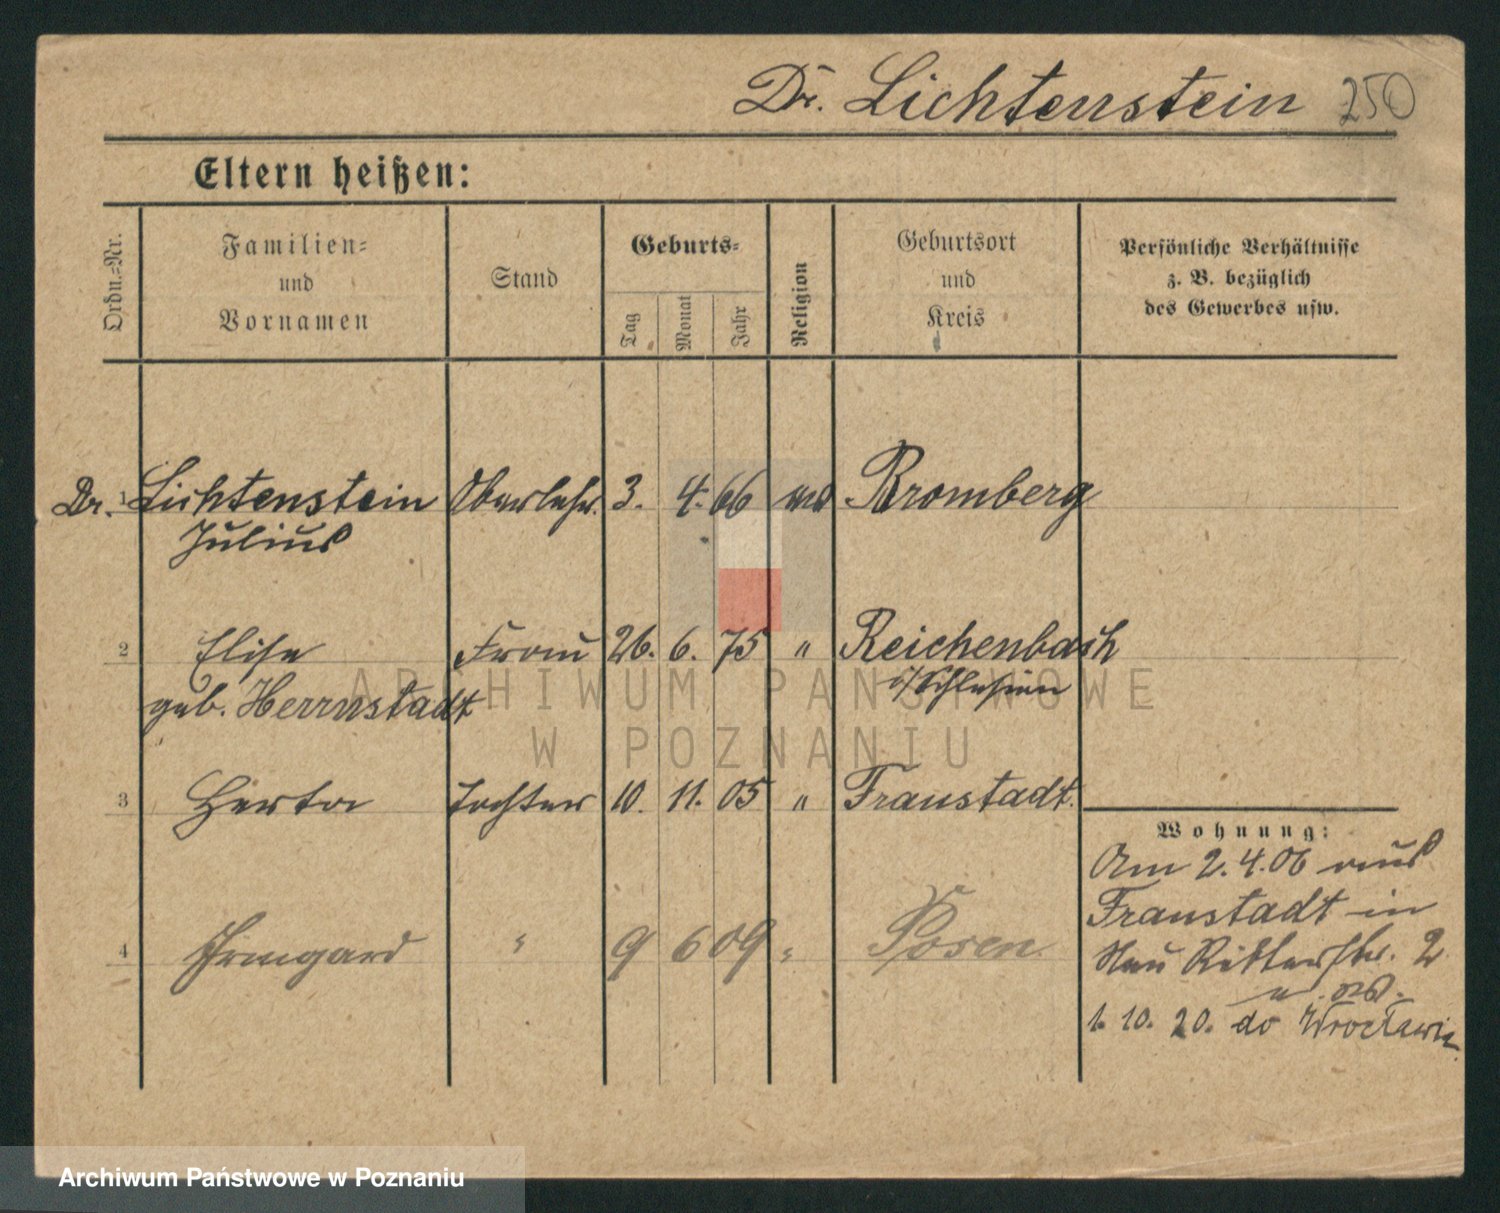 Dr. Lichtenstein 250
Eltern heißen:
Ordn.-Nr.
Familien-
und
Vornamen
Stand
Geburts-
Tag
Monat
Jahr
Religion
Geburtsort
und
Kreis
Persönliche Verhältnisse
z. B. bezüglich
des Gewerbes usw.
Dr. 1 Lichtenstein Oberlehr. 3. 4. 66 mos Bromberg
Julius
2 Elise Frau 26. 6. 75 " Reichenbach
geb. Herrnstadt i/Schlesien
3 Herta Tochter 10. 11. 05 " Fraustadt.
Wohnung:
Am 2.4.06 aus
Fraustadt in
Neu Ritterstr. 2
4 Irmgard " 9 6 09 " Posen
1. 10. 20. do Wrocławia
ARCHIWUM PAŃSTWOWE
W POZNANIU
Archiwum Państwowe w Poznaniu